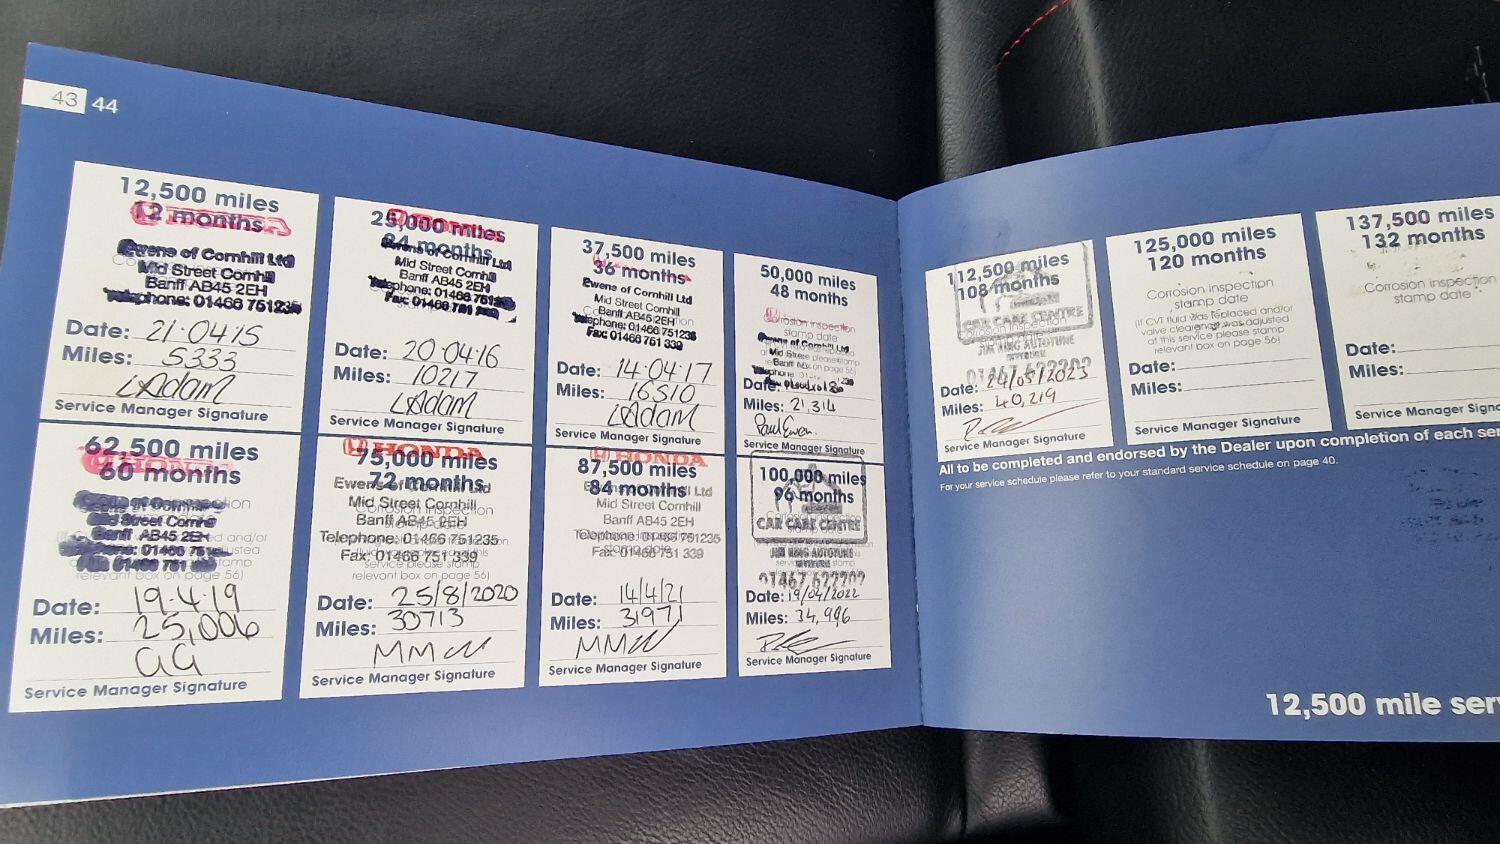 43 44
12,500 miles
12 months
HONDA
Ewens of Cornhill Ltd
Mid Street Cornhill
Banff AB45 2EH
Telephone: 01466 751235
Date: 21·04·15
Miles: 5333
LAdam
Service Manager Signature
25,000 miles
24 months
Ewens of Cornhill Ltd
Mid Street Cornhill
Banff AB45 2EH
Telephone: 01466 751235
Fax: 01466 751 339
Date: 20·04·16
Miles: 10217
LAdam
Service Manager Signature
37,500 miles
36 months
Ewens of Cornhill Ltd
Mid Street Cornhill
Banff AB45 2EH
Telephone: 01466 751235
Fax: 01466 751 339
Date: 14·04·17
Miles: 16510
LAdam
Service Manager Signature
50,000 miles
48 months
Corrosion inspection
stamp date
Ewens of Cornhill Ltd
Mid Street
Banff
Date:
Miles: 21,314
Paul Ewen.
Service Manager Signature
62,500 miles
60 months
HONDA
Banff AB45 2EH
relevant box on page 56)
Date: 19·4·19
Miles: 25,006
GG
Service Manager Signature
HONDA
75,000 miles
72 months
Ewens of Cornhill Ltd
Mid Street Cornhill
Banff AB45 2EH
Telephone: 01466 751235
Fax: 01466 751 339
service please stamp
relevant box on page 56)
Date: 25/8/2020
Miles: 30713
Service Manager Signature
HONDA
87,500 miles
84 months
Ewens of Cornhill Ltd
Mid Street Cornhill
Banff AB45 2EH
Telephone: 01466 751235
Fax: 01466 751 339
Date: 14/4/21
Miles: 31971
Service Manager Signature
100,000 miles
96 months
CAR CARE CENTRE
JIM KING AUTOTUNE
INVERURIE
01467 622202
Date: 19/04/2022
Miles: 34,996
Service Manager Signature
112,500 miles
108 months
CAR CARE CENTRE
Corrosion inspection
JIM KING AUTOTUNE
INVERURIE
01467 622202
Date: 24/05/2023
Miles: 40,219
Service Manager Signature
125,000 miles
120 months
Corrosion inspection
stamp date
(If CVT fluid was replaced and/or
valve clearance was adjusted
at this service please stamp
relevant box on page 56)
Date:
Miles:
Service Manager Signature
137,500 miles
132 months
Corrosion inspection
stamp date
Date:
Miles:
Service Manager
All to be completed and endorsed by the Dealer upon completion of each
For your service schedule please refer to your standard service schedule on page 40.
12,500 mile